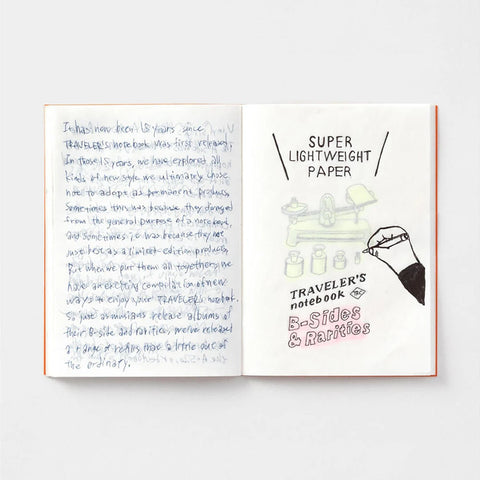 It has now been 15 years since
TRAVELER'S notebook was first released.
In those 15 years, we have explored all
kinds of new style we ultimately chose
not to adopt as permanent products.
Sometimes this was because they diverged
from the general purpose of a notebook,
and sometimes it was because they were
just best as a limited edition products.
But when we put them all together, we
have an exciting compilation of new
ways to enjoy your TRAVELER'S notebook.
So just as musicians release albums of
their B-side and rarities, we've released
a range of refills that a little out of
the ordinary.
SUPER
LIGHTWEIGHT
PAPER
TRAVELER'S
notebook
B-Sides
& Rarities